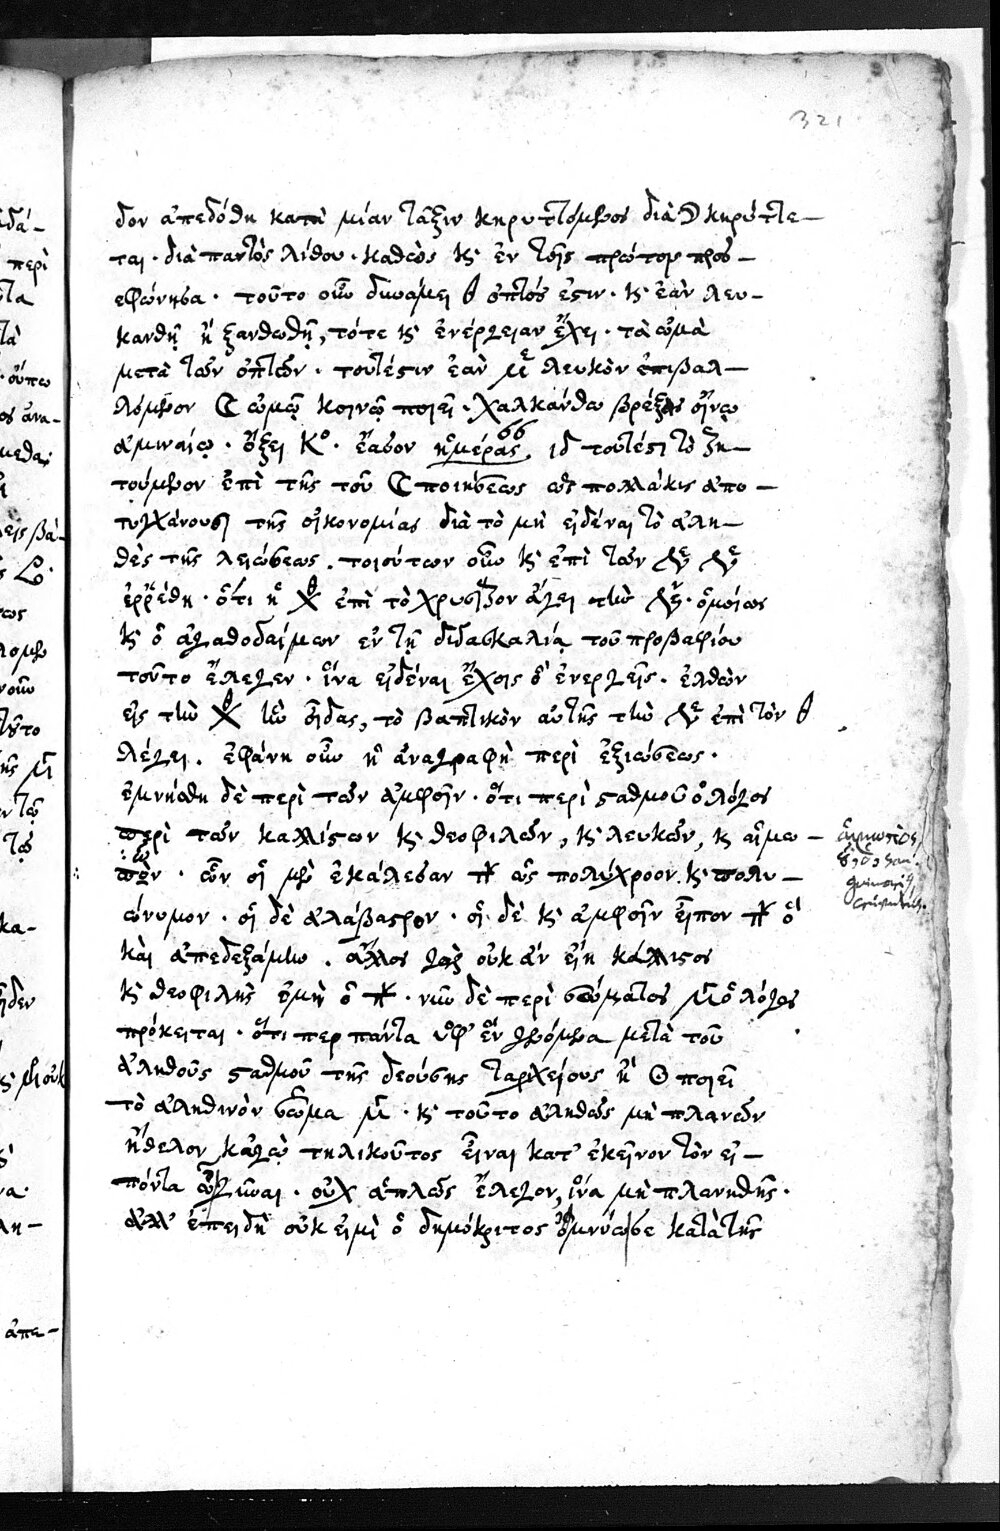 321
δον ἀπεδόθη κατὰ μίαν τάξιν κηρυττόμενος διὰ ☽ κηρύττε-
ται · διὰ παντὸς λίθου · καθὼς κ ἐν τοῖς πρώτοις προσ-
εφώνησα · τοῦτο οὖν δυνάμει θ ὀπτός ἐστιν · κ ἐὰν λευ-
κανθῇ ἢ ξανθωθῇ, τότε κ ἐνέργειαν ἔχει · τὰ ὠμὰ
μετὰ τῶν ὀπτῶν · τουτέστιν ἐὰν λευκὸν ἐπιβαλ-
λόμενον ☾ ὠμῷ κοινῷ ποιεῖ · χαλκάνθω βρέξας οἴνῳ
ἀμιναίῳ · ὄξει Κο · ἔασον ἡμέρας ιδ τουτέστι τὸ ζη-
τούμενον ἐπὶ τῆς τοῦ ☾ ποιήσεως ὡς πολλάκις ἀπο-
τυγχάνουσι τῆς οἰκονομίας διὰ τὸ μὴ εἰδέναι τὸ ἀλη-
θὲς τῆς λειώσεως · τοιούτων οὖν κ ἐπὶ τῶν
ἐρρέθη · ὅτι ἡ ἐπὶ τὸ χρυσίζον ἄγει τὴν · ὁμοίως
κ ὁ ἀγαθοδαίμων ἐν τῇ διδασκαλίᾳ τοῦ προβαφίου
τοῦτο ἔλεγεν · ἵνα εἰδέναι ἔχοις ὃ ἐνεργεῖς · ἐλθὼν
εἰς τὴν οἶδας, τὸ βαπτικὸν αὐτῆς τὴν ἐπὶ τὸν θ
λέγει · ἐφάνη οὖν ἡ ἀναγραφὴ περὶ ἐξιώσεως ·
ἐμνήσθη δὲ περὶ τῶν ἀμφοῖν · ὅτι περὶ σταθμοῦ ὁ λόγος
περὶ τῶν καλλίστων κ θεοφιλῶν, κ λευκῶν, κ αἱμω-
πῶν · ὧν οἱ μὲν ἐκάλεσαν ὡς πολύχροον κ πολυ-
ώνυμον · οἱ δὲ ἀλάβαστρον · οἱ δὲ κ ἀμφοῖν εἶπον ὃ
καὶ ἀπεδεξάμην · ἄλλος γὰρ οὐκ ἂν εἴη κάλλιστος
κ θεοφιλὴς ἐμὴ ὁ · νῦν δὲ περὶ σώματος ὁ λόγος
πρόκειται · ὅτι περ πάντα ὑφ' ἓν γενόμενα μετὰ τοῦ
ἀληθοῦς σταθμοῦ τῆς δεούσης ταριχείους ἢ ποιεῖ
τὸ ἀληθινὸν σῶμα · κ τοῦτο ἀληθῶς μὴ πλανῶν
ἤθελον κἀγὼ τηλικοῦτος εἶναι κατ' ἐκεῖνον τὸν εἰ-
πόντα · οὐχ ἁπλῶς ἔλεγον, ἵνα μὴ πλανηθῇς ·
ἀλλ' ἐπειδὴ οὐκ εἰμὶ ὁ δημόκριτος ὀμνύω σε κατὰ τῆς